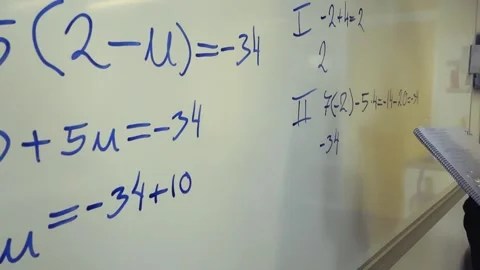 5(2-u)=-34
+5u=-34
u=-34+10
I -2+4=2
2
II 7(-2)-5·4=-14-20=-34
-34